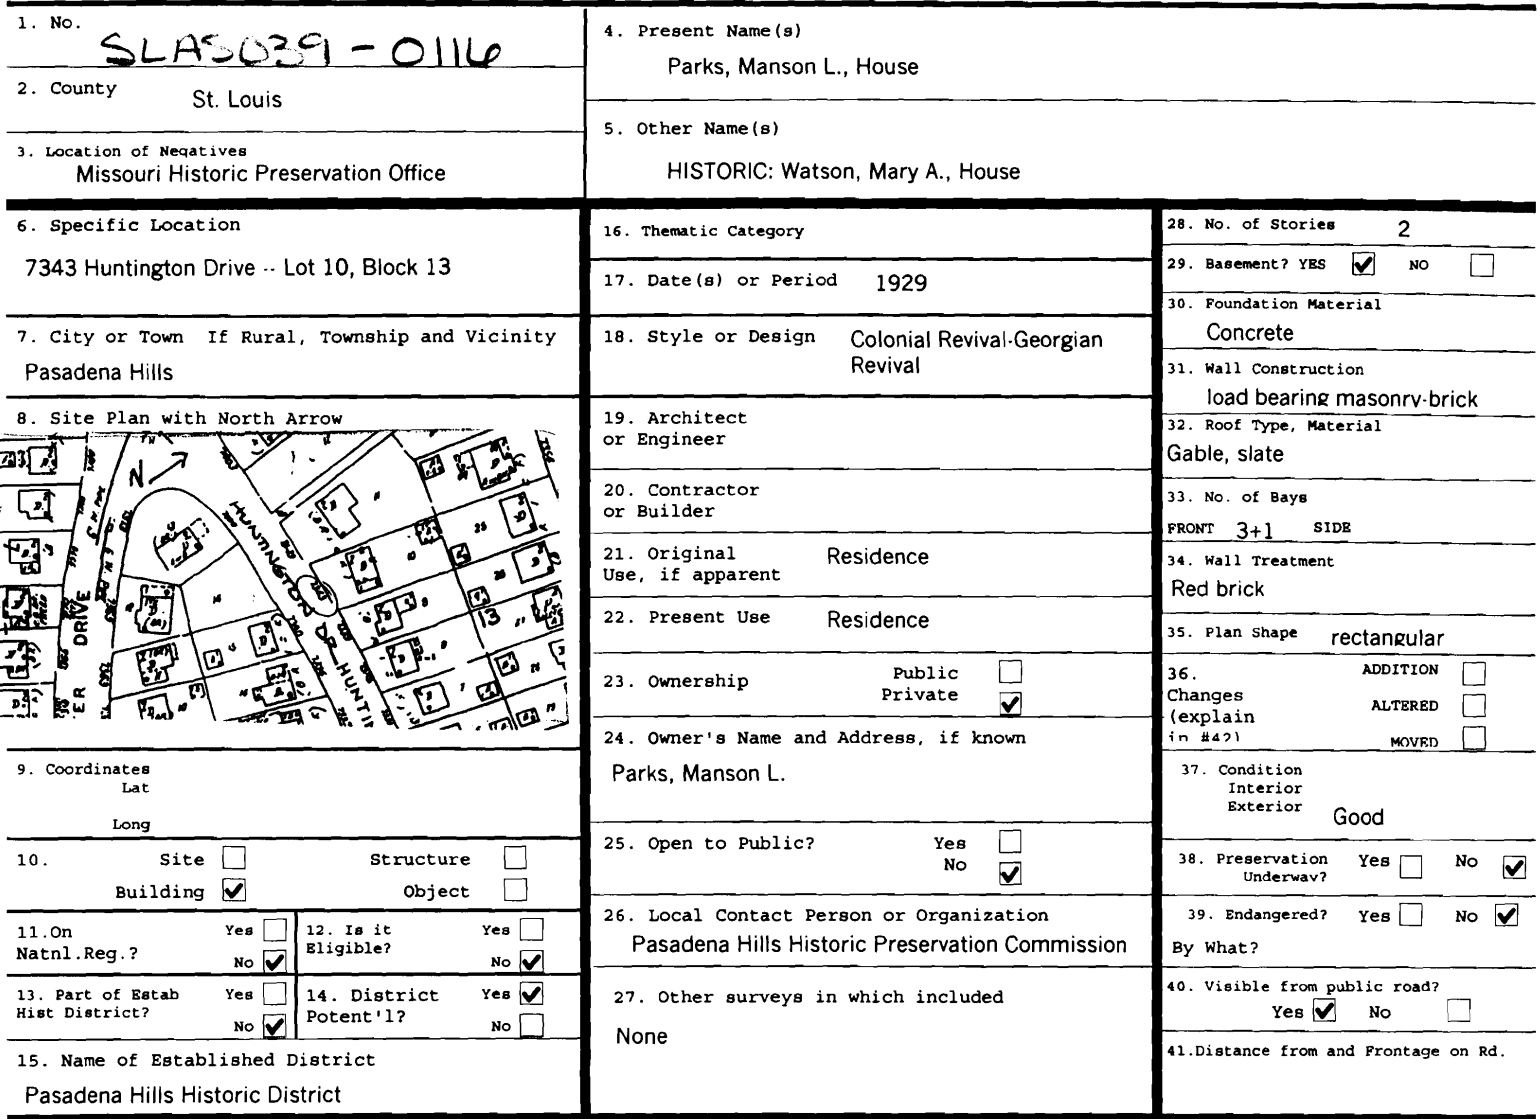 1. No.
SLAS039-0116
2. County
St. Louis
3. Location of Negatives
Missouri Historic Preservation Office
4. Present Name(s)
Parks, Manson L., House
5. Other Name(s)
HISTORIC: Watson, Mary A., House
6. Specific Location
7343 Huntington Drive -- Lot 10, Block 13
7. City or Town If Rural, Township and Vicinity
Pasadena Hills
8. Site Plan with North Arrow
N
HUNTINGTON DR.
HUNTIN
ER DRIVE
13
9. Coordinates
Lat
Long
10. Site Structure
Building ✔ Object
11.On Yes
Natnl.Reg.? No ✔
12. Is it Yes
Eligible? No ✔
13. Part of Estab Yes
Hist District? No ✔
14. District Yes ✔
Potent'l? No
15. Name of Established District
Pasadena Hills Historic District
16. Thematic Category
17. Date(s) or Period 1929
18. Style or Design Colonial Revival-Georgian
Revival
19. Architect
or Engineer
20. Contractor
or Builder
21. Original Residence
Use, if apparent
22. Present Use Residence
23. Ownership Public
Private ✔
24. Owner's Name and Address, if known
Parks, Manson L.
25. Open to Public? Yes
No ✔
26. Local Contact Person or Organization
Pasadena Hills Historic Preservation Commission
27. Other surveys in which included
None
28. No. of Stories 2
29. Basement? YES ✔ NO
30. Foundation Material
Concrete
31. Wall Construction
load bearing masonry-brick
32. Roof Type, Material
Gable, slate
33. No. of Bays
FRONT 3+1 SIDE
34. Wall Treatment
Red brick
35. Plan Shape rectangular
36. ADDITION
Changes
(explain ALTERED
in #42) MOVED
37. Condition
Interior
Exterior Good
38. Preservation Yes No ✔
Underway?
39. Endangered? Yes No ✔
By What?
40. Visible from public road?
Yes ✔ No
41.Distance from and Frontage on Rd.